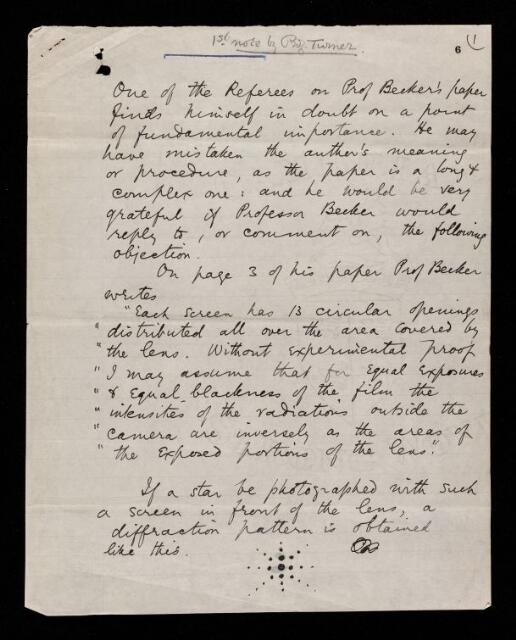 1st note by Prof Turner.
6 1
One of the Referees on Prof Becker's paper
finds himself in doubt on a point
of fundamental importance. He may
have mistaken the author's meaning
or procedure, as the paper is a long &
complex one: and he would be very
grateful if Professor Becker would
reply to, or comment on, the following
objection.
On page 3 of his paper Prof Becker
writes
"Each screen has 13 circular openings
"distributed all over the area covered by
"the lens. Without experimental proof
"I may assume that for equal exposures
"& equal blackness of the film the
"intensities of the radiations outside the
"camera are inversely as the areas of
"the exposed portions of the lens."
If a star be photographed with such
a screen in front of the lens, a
diffraction pattern is obtained
like this.